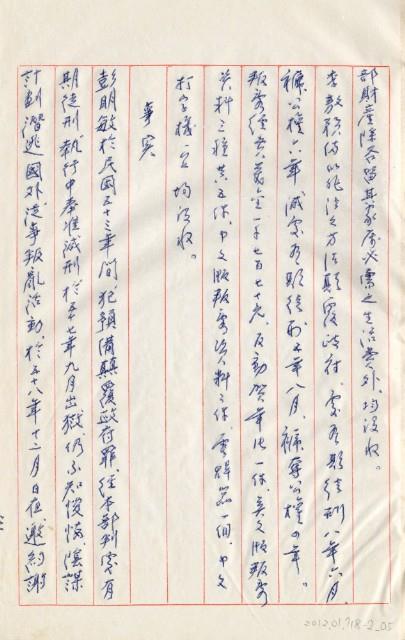 部財產除各留其家屬必需之生活費外，均沒收。
李敖預備以非法之方法顛覆政府，處有期徒刑八年六月，
褫公權六年，減處有期徒刑五年八月，褫奪公權四年。
叛亂經費美金一千七百七十元，反動賀年片一件，英文版叛亂
資料三種共五件，中文版叛亂資料二件，電焊器一個，中文
打字機一台均沒收。
事實
彭明敏於民國五十三年間，犯預備顛覆政府罪，經本部判處有
期徒刑，執行中奉准減刑，於五十七年九月出獄，仍不知悛悔，陰謀
計劃潛逃國外從事叛亂活動，於五十八年十二月 日在 邀約謝
2012.01.718-2_05